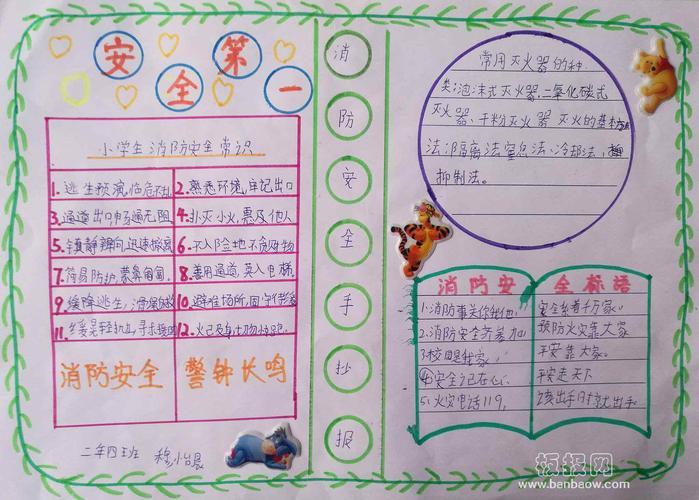 安全第一
小学生消防安全常识
1. 逃生预演,临危不乱
2. 熟悉环境,牢记出口
3. 通道出口,畅通无阻
4. 扑灭小火,惠及他人
5. 镇静辨向,迅速撤离
6. 不入险地,不贪财物
7. 简易防护,蒙鼻匍匐
8. 善用通道,莫入电梯
9. 缓降逃生,滑绳自救
10. 避难场所,固守待援
11. 缓晃轻抛,寻求援助
12. 火已及身,切勿惊跑
消防安全
警钟长鸣
二年四班
消防安全手抄报
常用灭火器的种
类:泡沫式灭火器、二氧化碳式
灭火器、干粉灭火器 灭火的基本方
法:隔离法、窒息法、冷却法、
抑制法。
消防安全标语
1.消防事关你我他, 安全系着千万家。
2.消防安全齐参加 预防火灾靠大家
3.校园是我家 平安靠大家。
4.安全记在心 平安走天下
5.火灾电话119, 该出手时就出手
板报网
www.banbaow.com